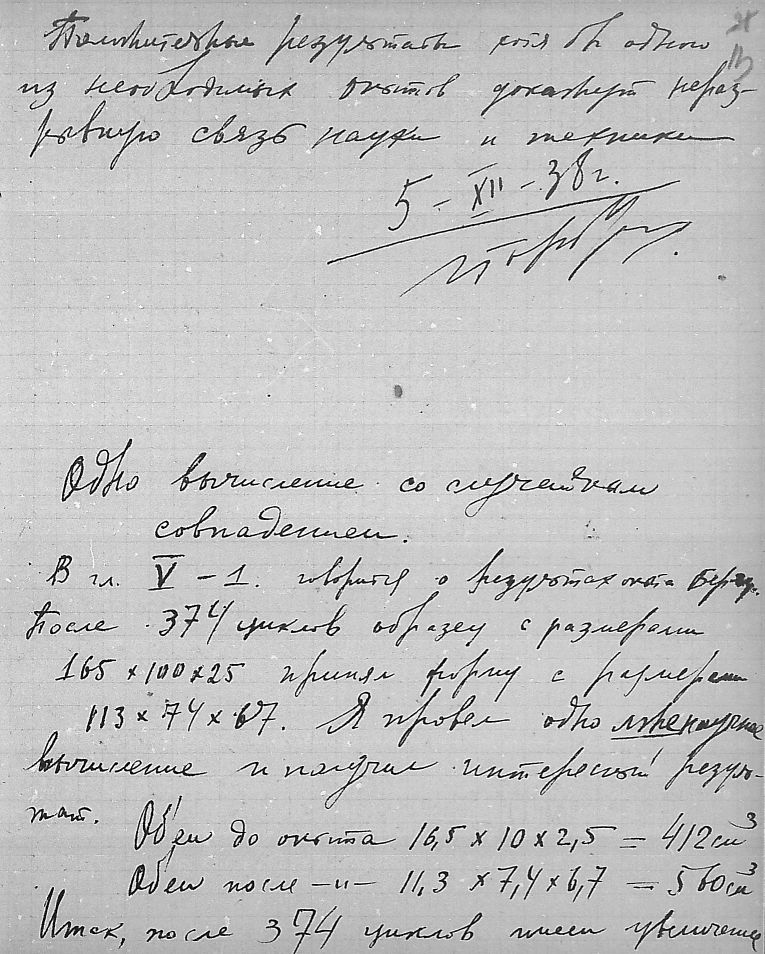 Положительные результаты хотя бы одного
из необходимых опытов докажут нераз-
рывную связь науки и техники
5 - XII - 38 г.
Одно вычисление со случайным
совпадением.
В гл. V - 1. говорится о результатах опыта
После 374 циклов образец с размерами
165 x 100 x 25 принял форму с размерами
113 x 74 x 67. Я провел одно лженаучное
вычисление и получил интересный резуль-
тат.
Объем до опыта 16,5 x 10 x 2,5 = 412 см³
Объем после -"- 11,3 x 7,4 x 6,7 = 560 см³
Итак, после 374 циклов имеем увеличение